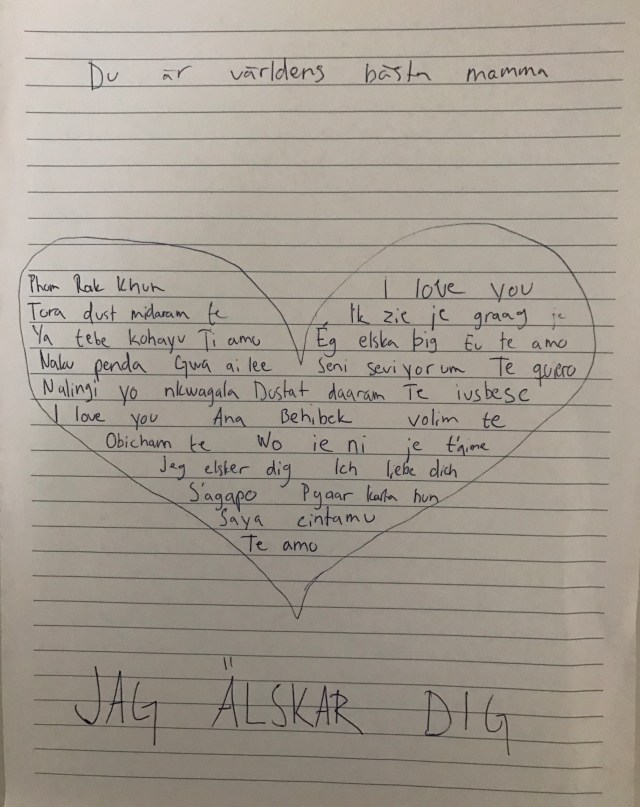 Du är världens bästa mamma
Phom Rak Khun I love you
Tora dust midaram te Ik zie je graag je
Ya tebe kohayu Ti amo Ég elska þig Eu te amo
Naku penda Gwa ai lee Seni seviyorum Te quero
Nalingi yo nkwagala Dustat daaram Te iusbese
I love you Ana Behibek volim te
Obicham te Wo ie ni je t'aime
Jeg elsker dig Ich liebe dich
S'agapo Pyaar karta hun
Saya cintamu
Te amo
JAG ÄLSKAR DIG